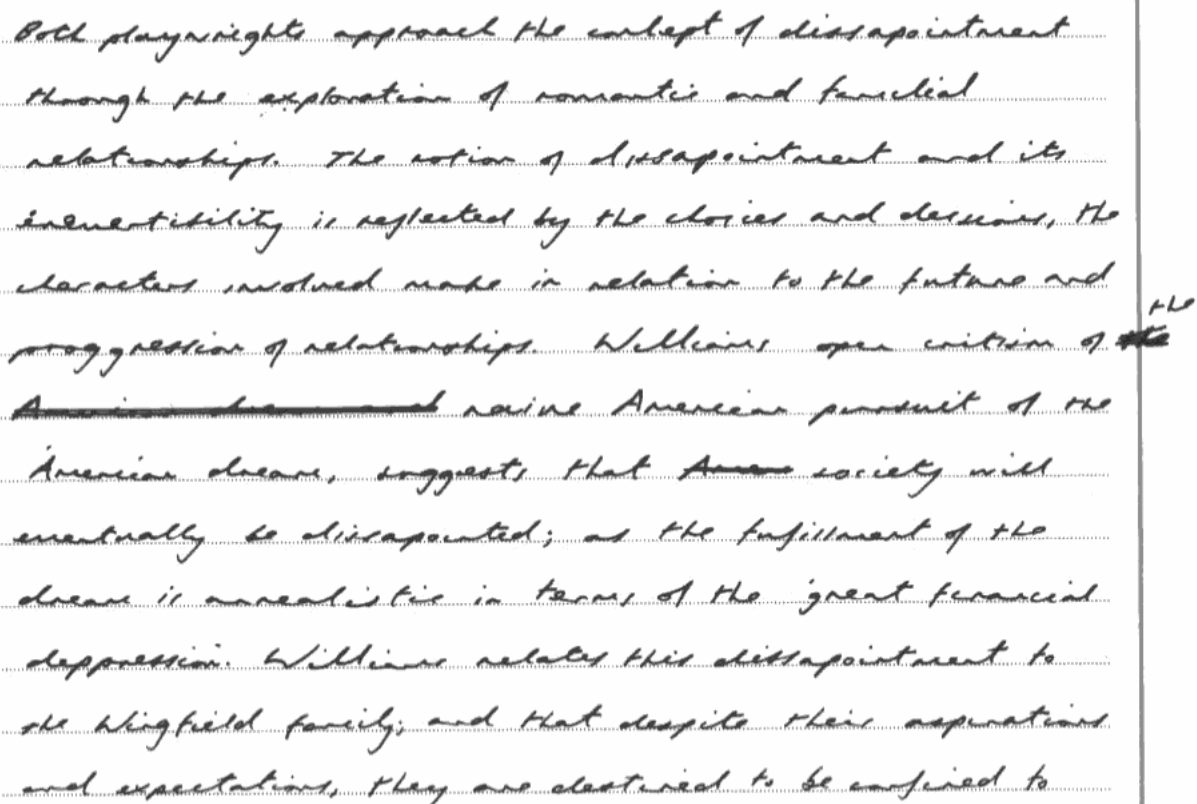 Both playwrights approach the concept of dissapointment
through the exploration of romantic and familial
relationships. The notion of dissapointment and its
inevertibility is reflected by the choices and decisions, the
characters involved make in relation to the future and
proggression of relationships. Williams open critism of the
naive American pursuit of the
American dream, suggests that society will
eventually be dissapointed; as the fulfillment of the
dream is unrealistic in terms of the 'great financial
deppression. Williams relates this dissapointment to
the Wingfield family; and that despite their aspirations
and expectations, they are destined to be confined to